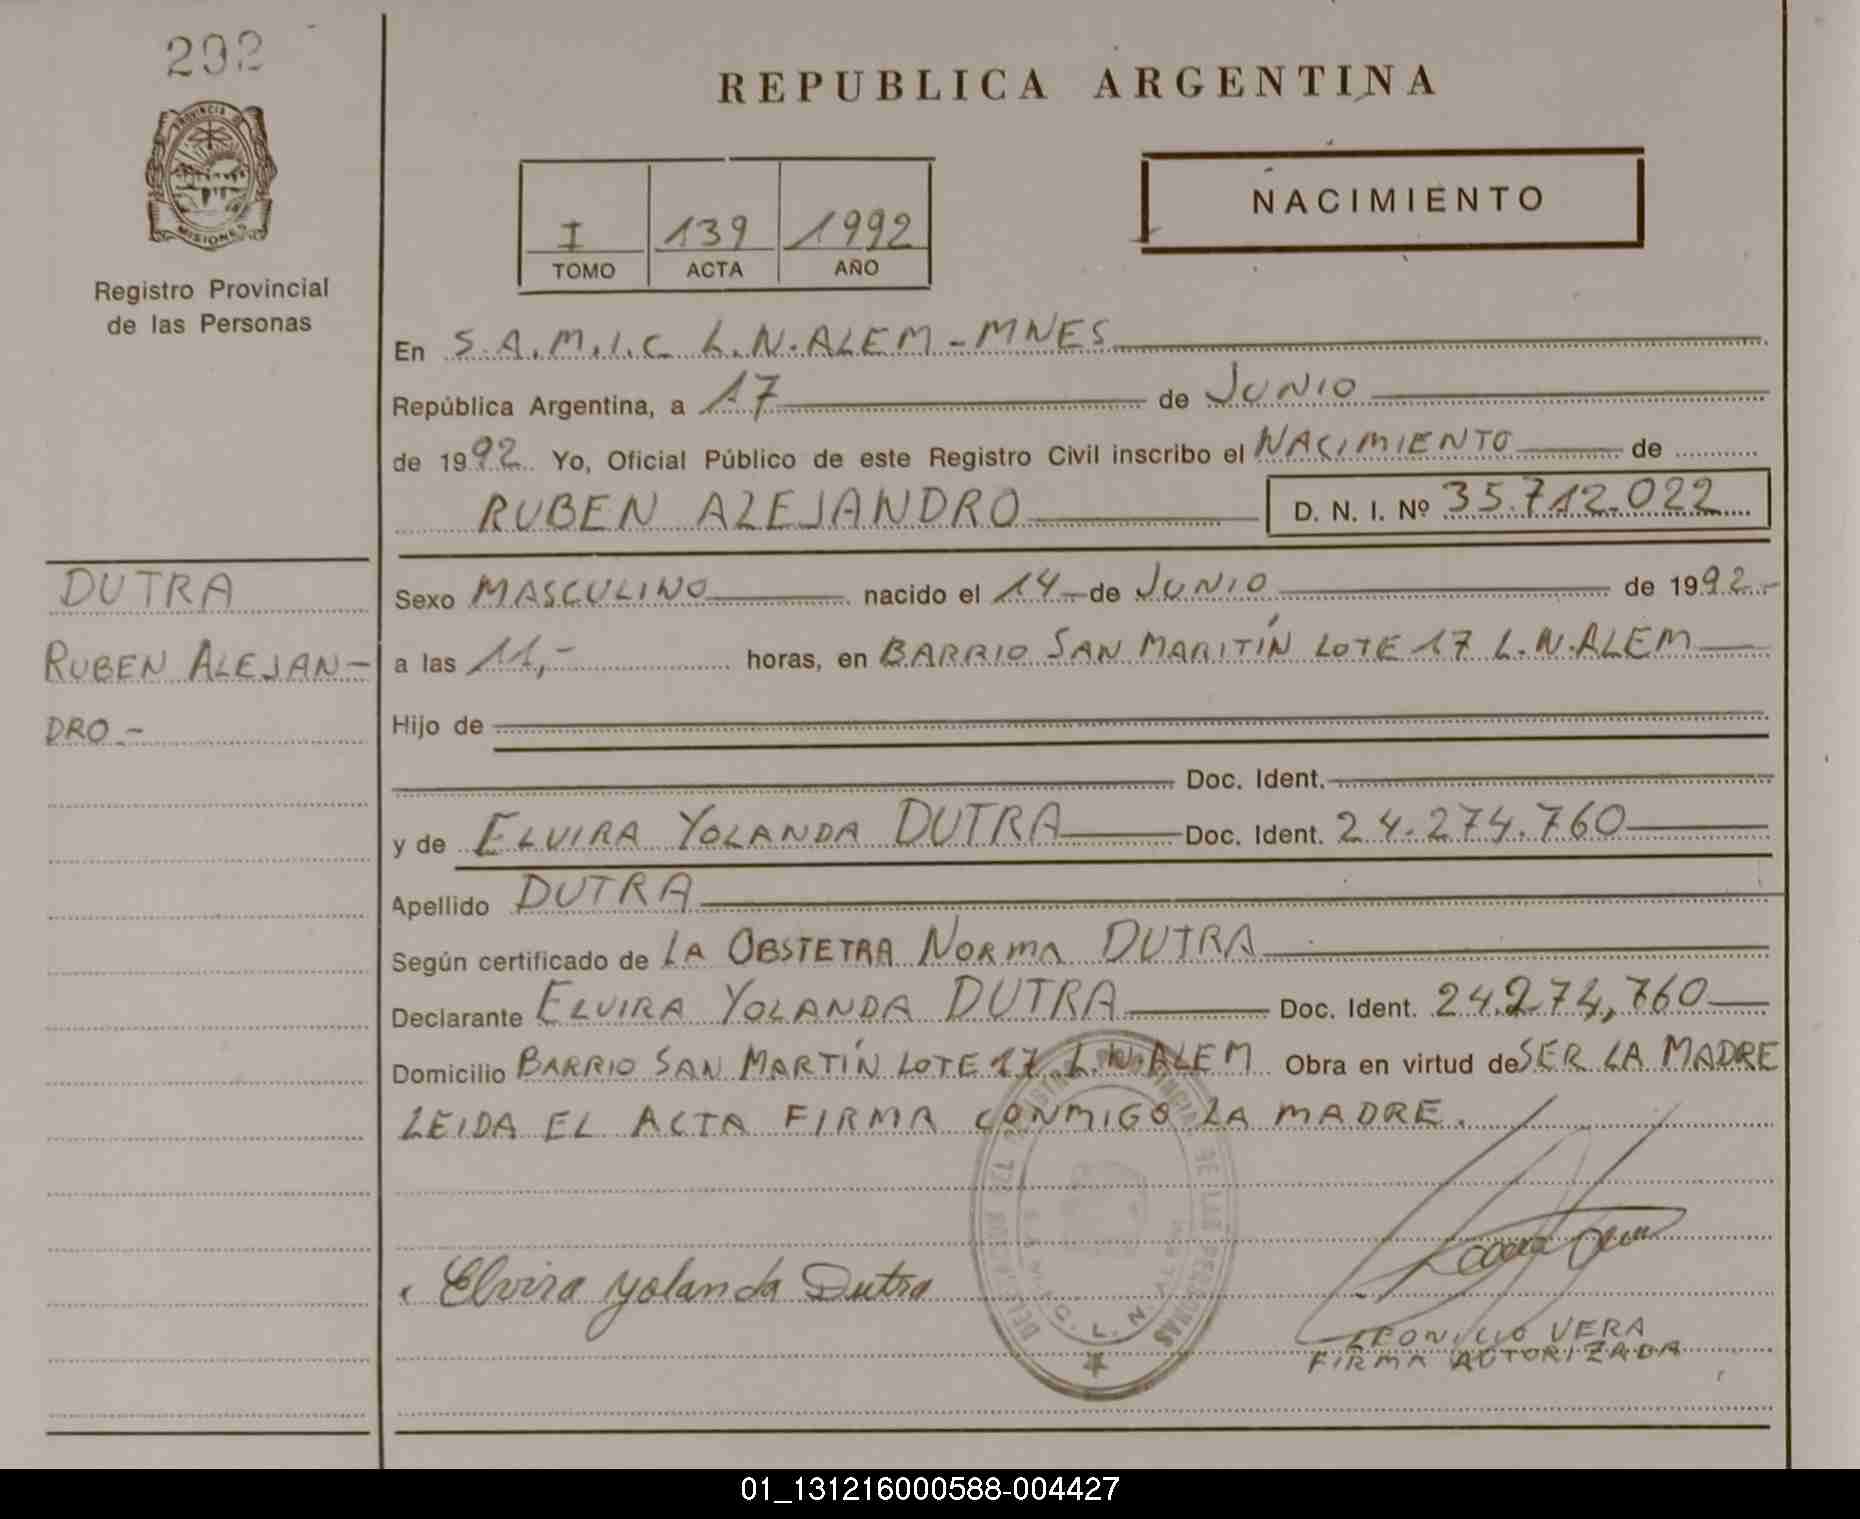 292
PROVINCIA DE
MISIONES
Registro Provincial
de las Personas
REPUBLICA ARGENTINA
I 139 1992
TOMO ACTA AÑO
NACIMIENTO
En S.A.M.I.C L.N.ALEM-MNES
República Argentina, a 17 de JUNIO
de 1992 Yo, Oficial Público de este Registro Civil inscribo el NACIMIENTO de
RUBEN ALEJANDRO D. N. I. Nº 35.712.022
DUTRA
RUBEN ALEJAN-
DRO.-
Sexo MASCULINO nacido el 14 de JUNIO de 1992.-
a las 11,- horas, en BARRIO SAN MARITÍN LOTE 17 L.N.ALEM
Hijo de
Doc. Ident.
y de ELVIRA YOLANDA DUTRA Doc. Ident. 24.274.760
Apellido DUTRA
Según certificado de LA OBSTETRA NORMA DUTRA
Declarante ELVIRA YOLANDA DUTRA Doc. Ident. 24.274,760
Domicilio BARRIO SAN MARTÍN LOTE 17 L.N.ALEM Obra en virtud de SER LA MADRE
LEIDA EL ACTA FIRMA CONMIGO LA MADRE.
Elvira Yolanda Dutra
VERA
FIRMA AUTORIZADA
01_131216000588-004427